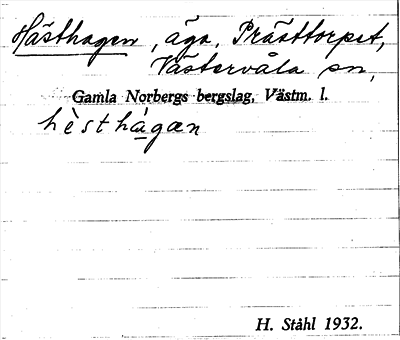 Hästhagen, äga, Prästtorpet,
Västervåla sn,
Gamla Norbergs bergslag, Västm. l.
hèsthágæn
H. Ståhl 1932.